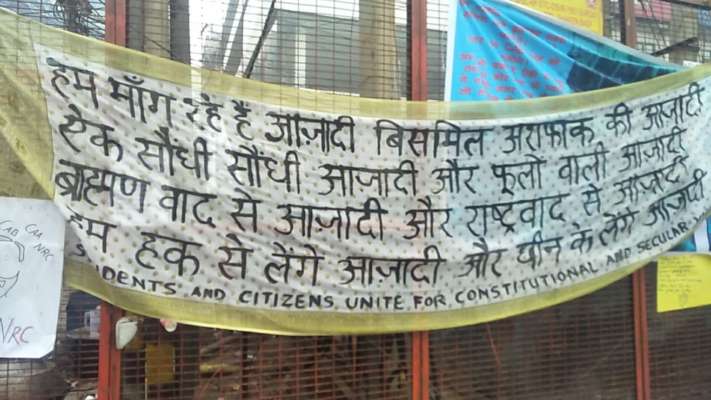 हम माँग रहे हैं आज़ादी बिसमिल अशफाक की आज़ादी
ऐक सौंधी सौंधी आज़ादी और फूलो वाली आज़ादी
ब्राह्मण वाद से आज़ादी और राष्ट्रवाद से आज़ादी
हम हक से लेंगे आज़ादी और छीन के लेंगे आज़ादी
STUDENTS AND CITIZENS UNITE FOR CONSTITUTIONAL AND SECULAR
CAB CAA
NRC
NRC